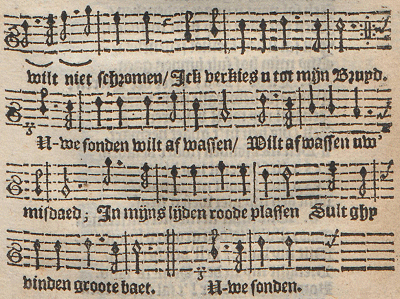 wilt niet schromen/ Ick verkies u tot mijn Bruyd.
U-we sonden wilt af wassen/ Wilt af wassen uw'
misdaed; In mijns lijden roode plassen Sult ghy
vinden groote baet. U-we sonden.